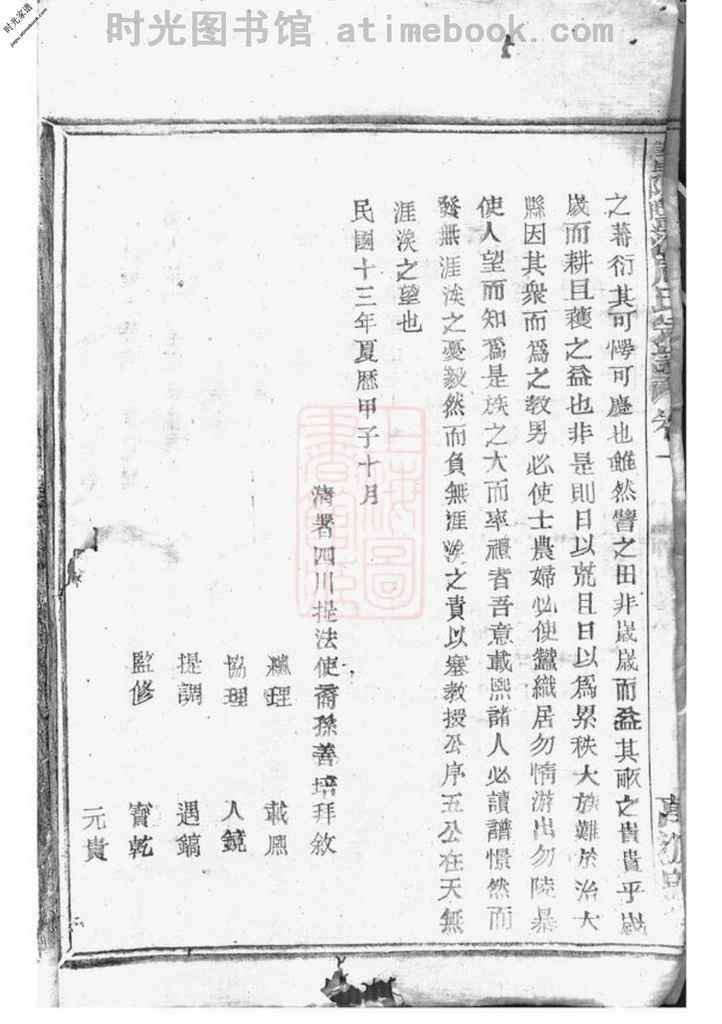 时光图书馆 atimebook.com
时光家谱
之蕃衍其可愕可麈也雖然譬之田非歲歲而益其畝之貴貴乎歲
歲而耕且穫之益也非是則日以荒且日以為累秩大族難於治大
縣因其衆而為之教男必使士農婦必使蠶織居勿惰游出勿陵暴
使人望而知為是族之大而率禮者吾意載熙諸人必讀譜憬然而
發無涯涘之憂毅然而負無涯涘之責以塞教授公序五公在天無
涯涘之望也
民國十三年夏曆甲子十月
清署四川提法使裔孫善培拜敘
總理 載熙
協理 人鏡
提調 遇鎬
監修 寶乾
元貴